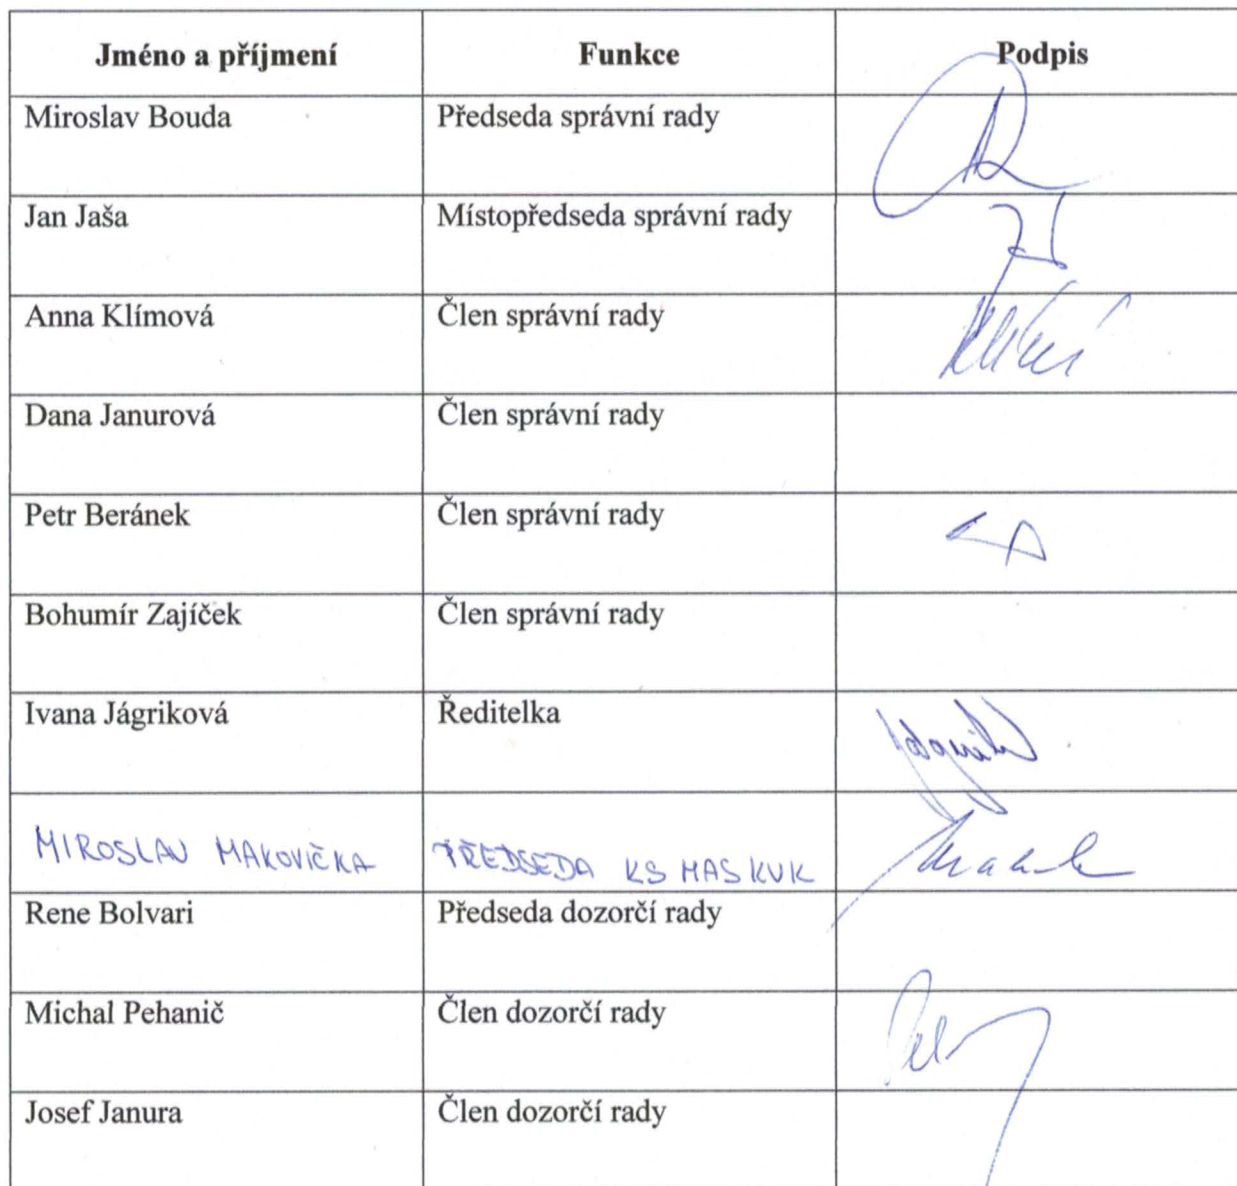 Jméno a příjmení Funkce Podpis
Miroslav Bouda Předseda správní rady
Jan Jaša Místopředseda správní rady
Anna Klímová Člen správní rady
Dana Janurová Člen správní rady
Petr Beránek Člen správní rady
Bohumír Zajíček Člen správní rady
Ivana Jágriková Ředitelka
MIROSLAV MAKOVIČKA PŘEDSEDA KS MAS KVK
Rene Bolvari Předseda dozorčí rady
Michal Pehanič Člen dozorčí rady
Josef Janura Člen dozorčí rady